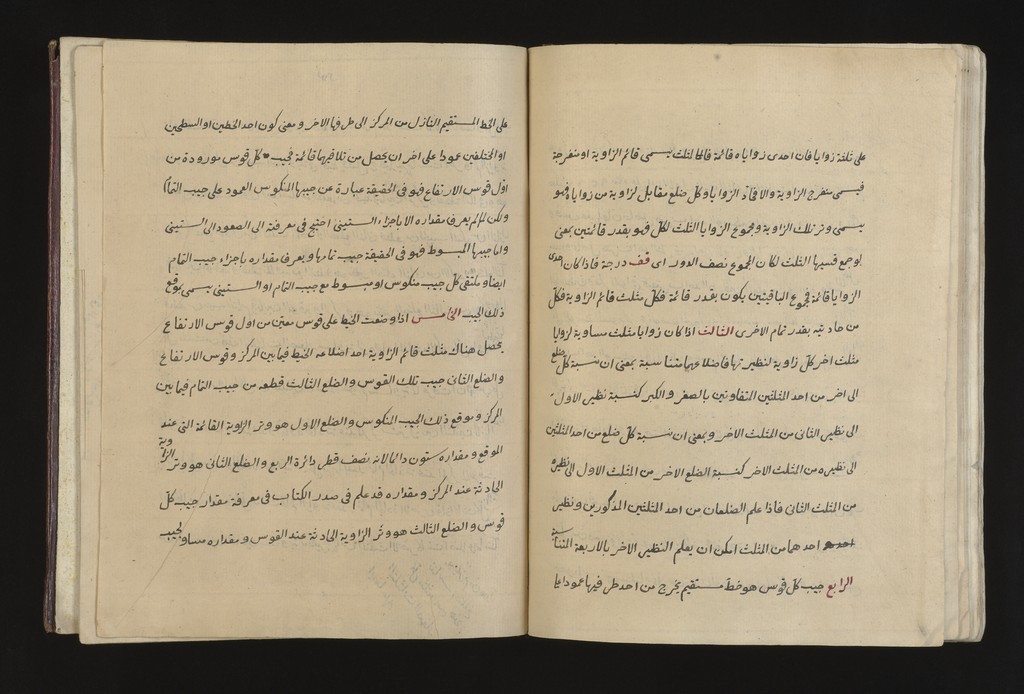 على ثلثة زوايا فان احدى زواياه قائمة فالمثلث يسمى قائم الزاوية او منفرجة
فيسمى منفرج الزاوية والا فحادّ الزوايا وكل ضلع مقابل لزاوية من زواياه فهو
يسمى وتر تلك الزاوية ومجموع الزوايا الثلث لكل فهو بقدر قائمتين بمعنى
لو جمع قسيها الثلث لكان المجموع نصف الدور اى قف درجة فاذا كان احدى
الزوايا قائمة فمجموع الباقيتين يكون بقدر قائمة فكل مثلث قائم الزاوية فكل
من حادتيه بقدر تمام الاخرى الثالث اذا كان زوايا مثلث مساوية لزوايا
مثلث اخر كل زاوية لنظيرتها فاضلاعهما متناسبة بمعنى ان نسبة كل ضلع
الى اخر من احد المثلثين المتفاوتين بالصغر والكبر كنسبة نظير الاول
الى نظير الثانى من المثلث الاخر وبمعنى ان نسبة كل ضلع من احد المثلثين
الى نظيره من المثلث الاخر كنسبة الضلع الاخر من المثلث الاول الى نظيره
من المثلث الثانى فاذا علم الضلعان من احد المثلثين المذكورين ونظير
احدهما من المثلث امكن ان يعلم النظير الاخر بالاربعة المتناسبة
الرابع جيب كل قوس هو خط مستقيم يخرج من احد طرفيها عمودا
على الخط المستقيم النازل من المركز الى طرفها الاخر ومعنى كون احد الخطين او السطحين
او المختلفين عمودا على اخر ان يحصل من تلاقيهما قائمة فجيب كل قوس موردة من
اول قوس الارتفاع فهو فى الحقيقة عبارة عن جيبها المنكوس العمود على جيب التمام
ولكن لما لم يعرف مقداره الا باجزاء الستينى احتيج فى معرفتة الى الصعود الى الستينى
واما جيبها المبسوط فهو فى الحقيقة جيب تمامها ويعرف مقداره باجزاء جيب التمام
ايضا وملتقى كل جيب منكوس او مبسوط مع جيب التمام او الستينى يسمى موقع
ذلك الجيب الخامس اذا وضعت الخيط على قوس معين من اول قوس الارتفاع
يحصل هناك مثلث قائم الزاوية احد اضلاعه الخيط فيما بين المركز وقوس الارتفاع
والضلع الثانى جيب تلك القوس والضلع الثالث قطعه من جيب التمام فيما بين
المركز وموقع ذلك الجيب المنكوس والضلع الاول هو وتر الزاوية القائمة التى عند
الموقع ومقداره ستون دائما لانه نصف قطر دائرة الربع والضلع الثانى هو وتر الزاوية
الحادثة عند المركز ومقداره قد علم فى صدر الكتاب فى معرفة مقدار جيب كل
قوس والضلع الثالث هو وتر الزاوية الحادثة عند القوس ومقداره مساو لجيب